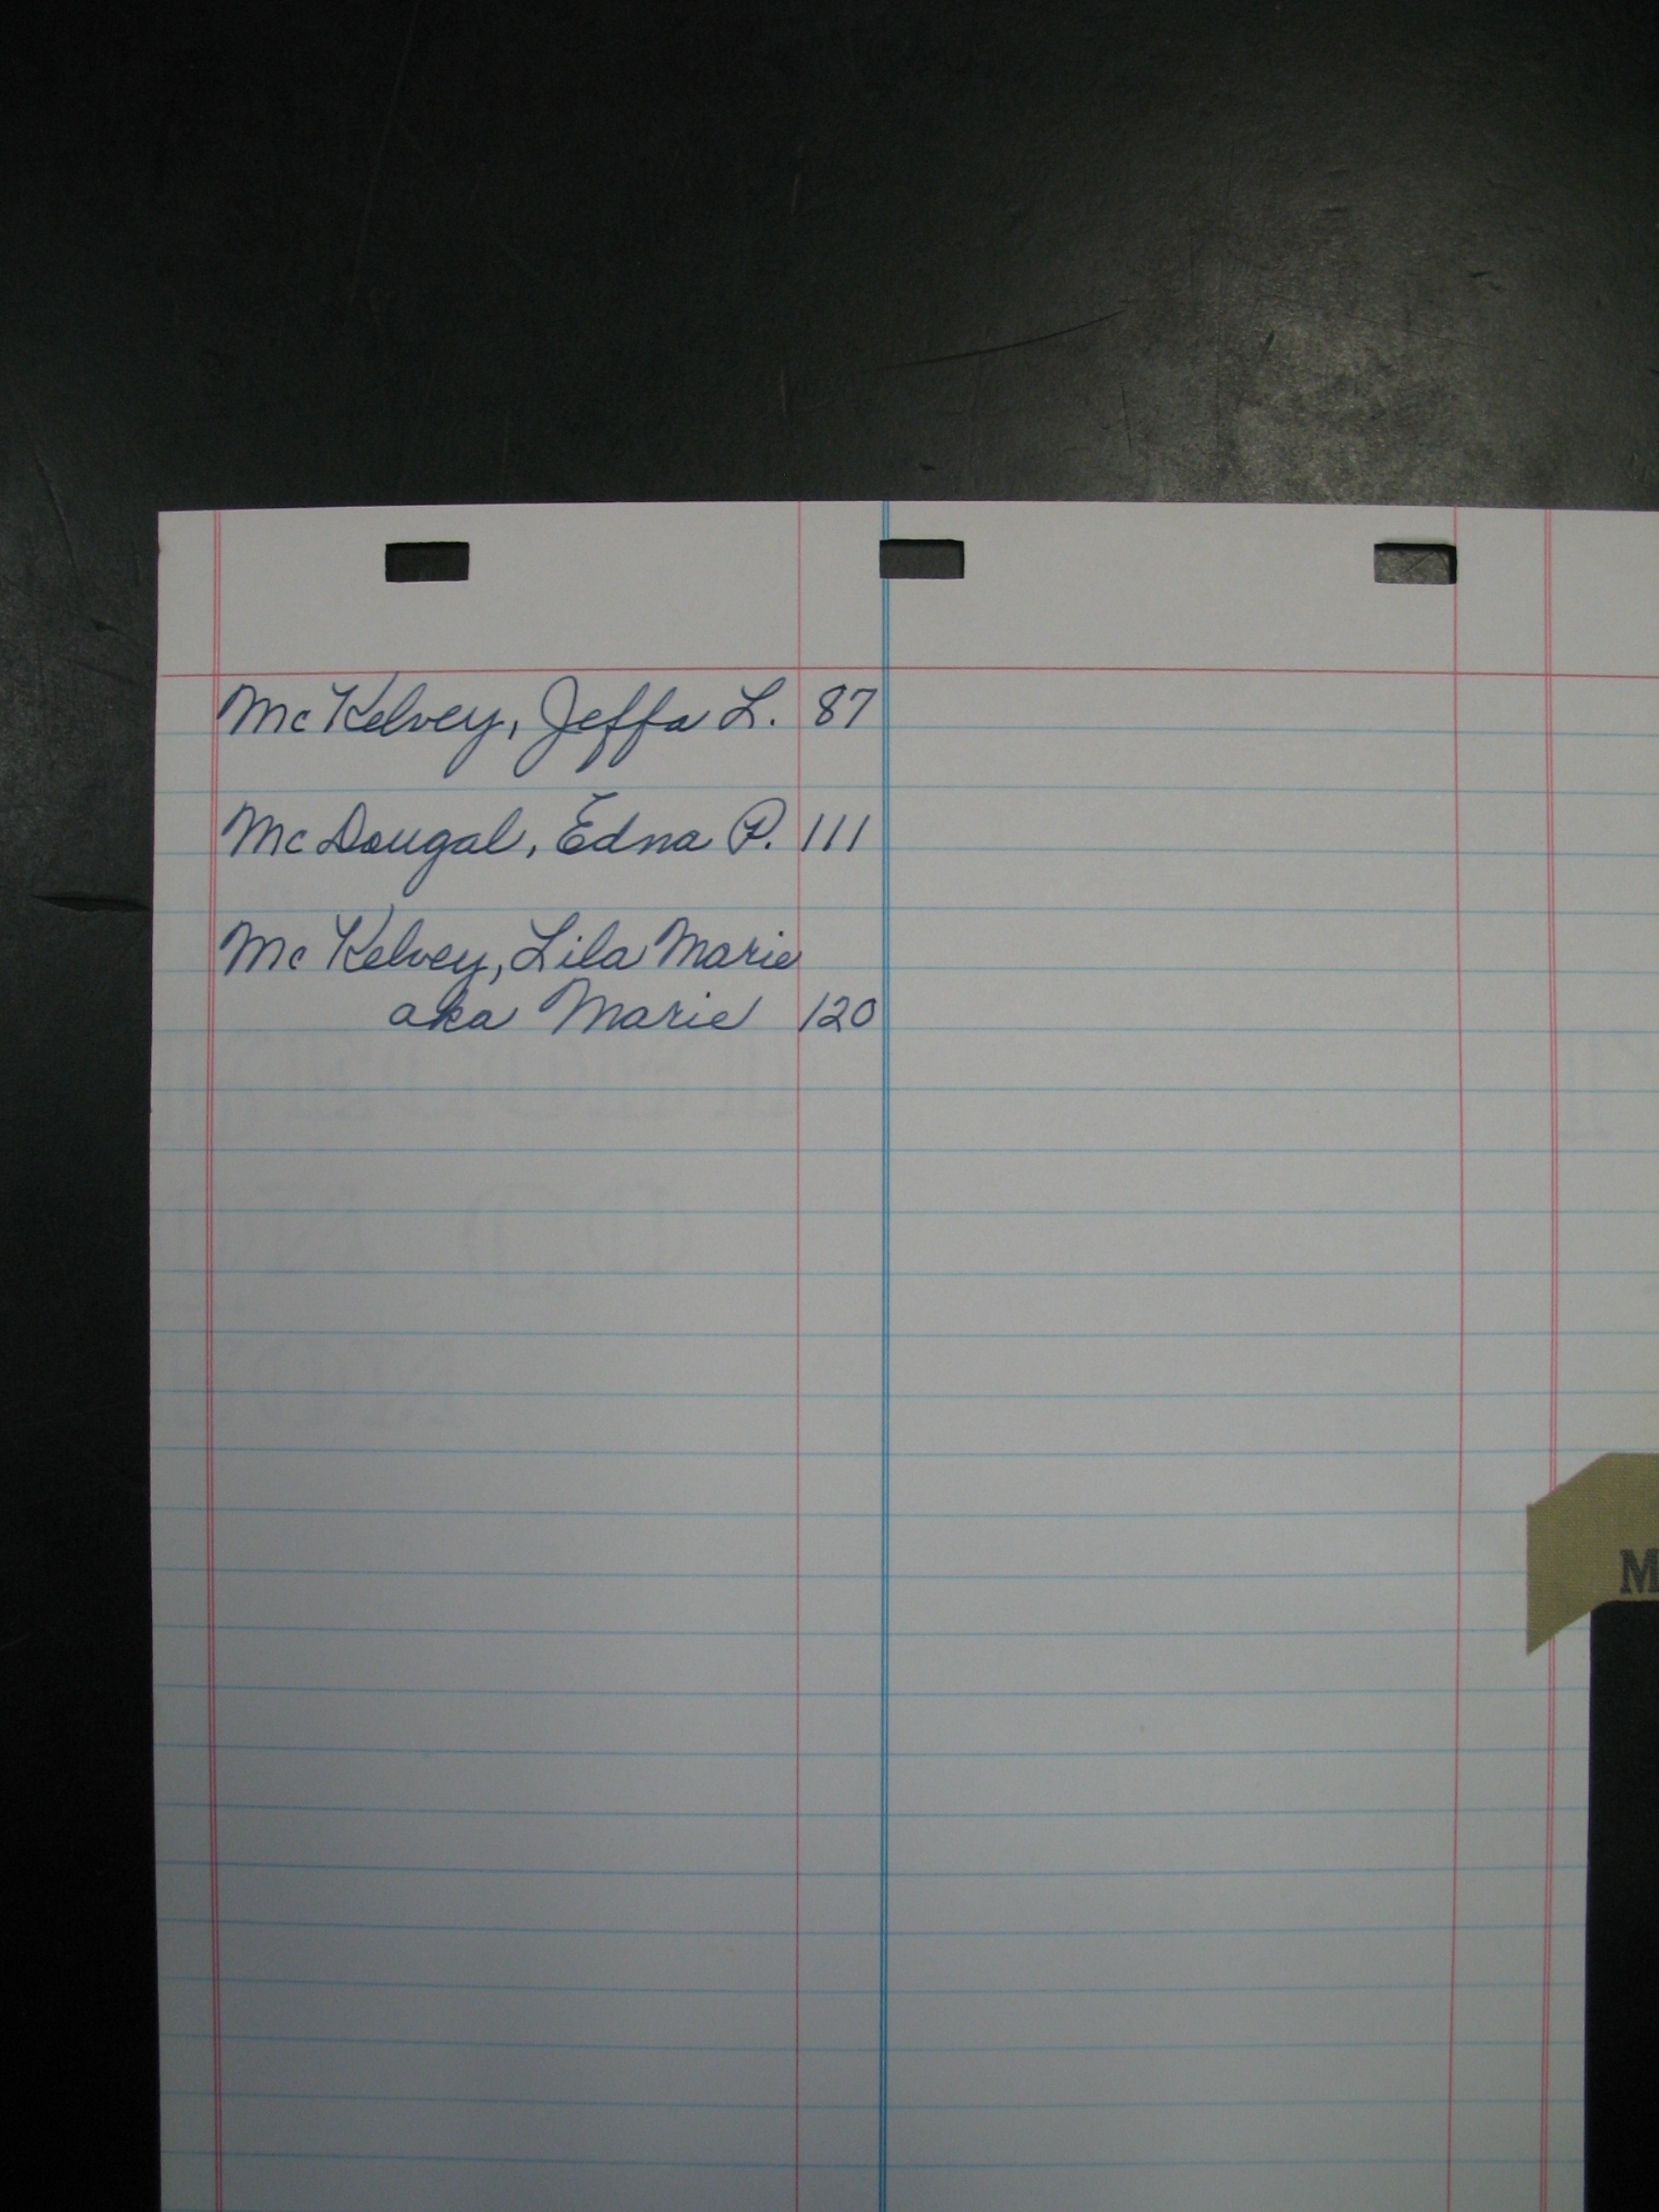 McKelvey, Jeffa L. 87
McDougal, Edna P. 111
McKelvey, Lila Marie
aka Marie 120
M